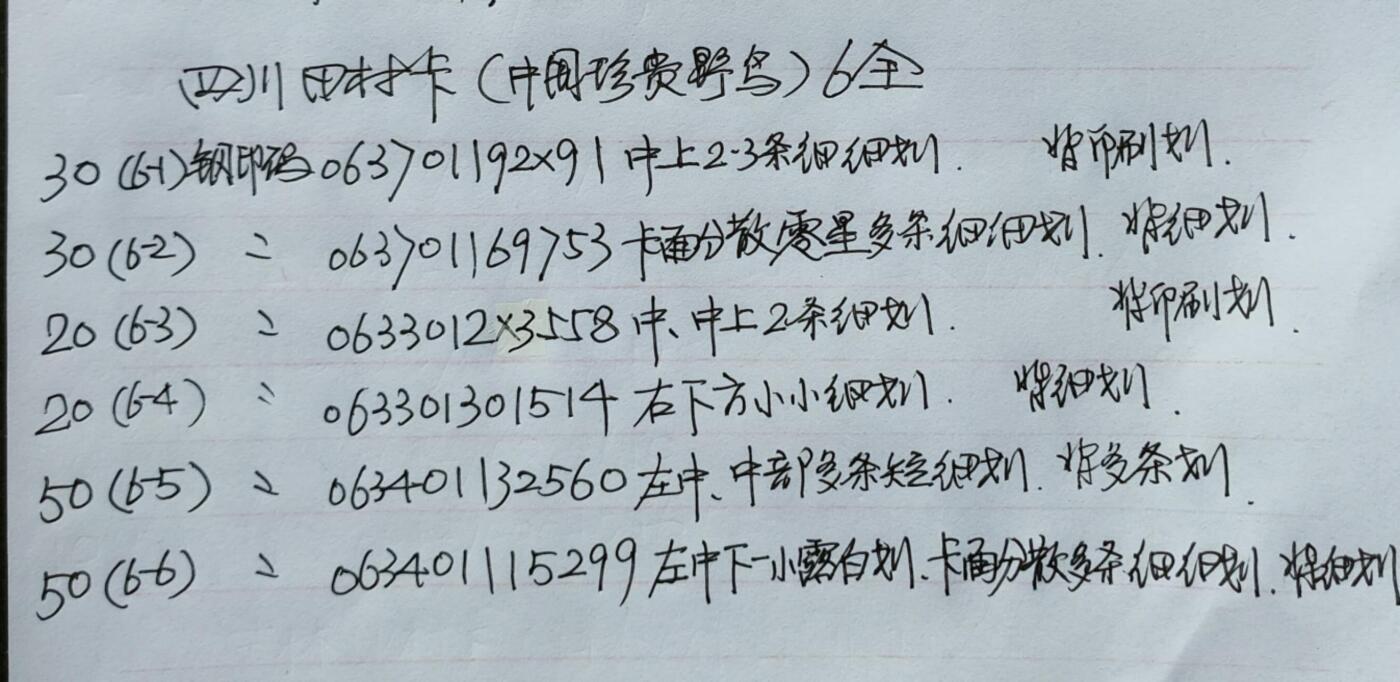 四川田村卡（中国珍贵野鸟）6全
30（6-1）钢印码063701192×91中上2-3条细细划. 背印刷划.
30（6-2） 〃 063701169753卡面分散零星多条细细划. 背细划.
20（6-3） 〃 0633012×3558中、中上2条细划. 背印刷划.
20（6-4） 〃 063301301514右下方小小细划. 背细划.
50（6-5） 〃 063401132560左中、中部多条短细划. 背多条划.
50（6-6） 〃 063401115299左中下一小露白划、卡面分散多条细细划. 背细划